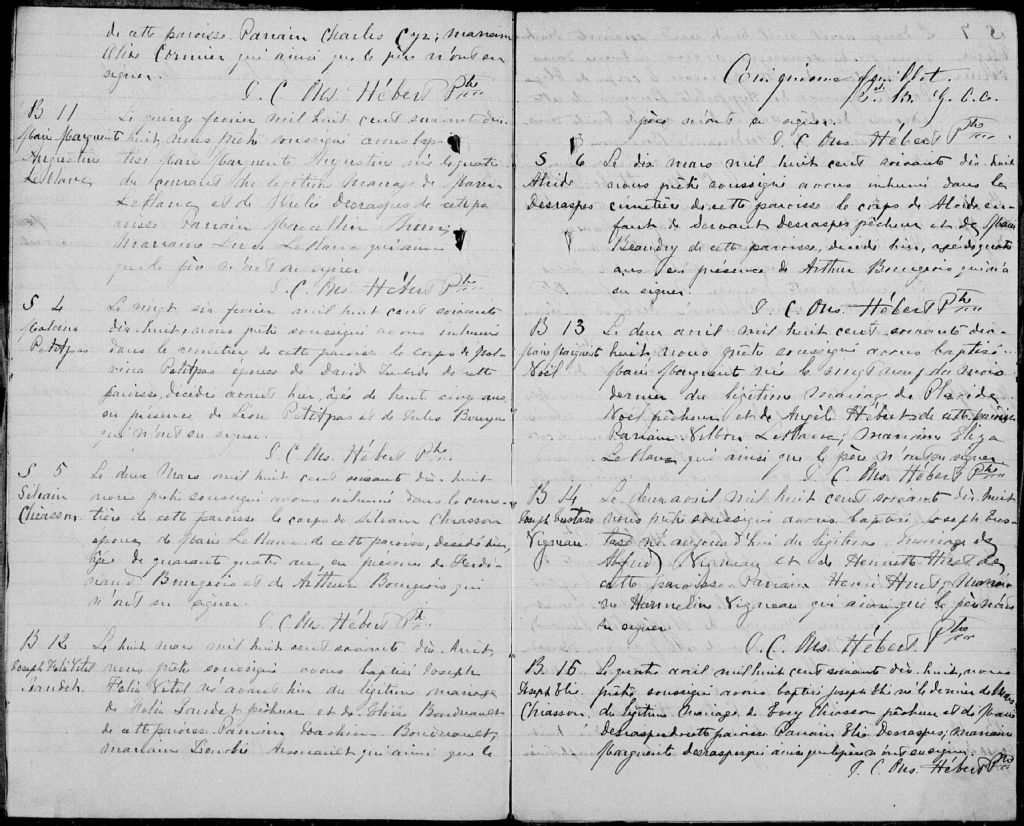 de cette paroisse Parrain Charles Cyr; marraine
Cormier qui ainsi que le père n'ont su
signer.
J. C. Ons. Hébert Ptre
B 11
Marie Marguerite
Augustine
LeBlanc
Le onze février mil huit cent soixante dix-
huit, nous prêtre soussigné avons bap
tisé Marie Marguerite Augustine née le quatre
du courant du légitime mariage de
LeBlanc et de Desraspes de cette pa
roisse Parrain
Marraine LeBlanc qui ainsi
que le père n'ont su signer
J. C. Ons. Hébert Ptre
S 4
Malvina
Petitpas
Le vingt six février mil huit cent soixante
dix-huit, nous prêtre soussigné avons inhumé
dans le cimetière de cette paroisse le corps de Mal
vina Petitpas épouse de David de cette
paroisse, décédée avant hier, âgée de trente cinq ans,
en présence de Léon Petitpas et de Jules Bourgeois
qui n'ont su signer.
J. C. Ons. Hébert Ptre
S 5
Silvain
Chiasson
Le deux Mars mil huit cent soixante dix-huit
nous prêtre soussigné avons inhumé dans le cime
tière de cette paroisse le corps de Silvain Chiasson
époux de Marie LeBlanc de cette paroisse, décédé hier,
âgé de quarante quatre ans, en présence de Ferdi
nand Bourgeois et de Arthur Bourgeois qui
n'ont su signer.
J. C. Ons. Hébert Ptre
B 12
Joseph Félix Vital
Jaudet
Le huit mars mil huit cent soixante dix-huit,
nous prêtre soussigné avons baptisé Joseph
Félix Vital né avant hier du légitime mariage
de Félix Jaudet pêcheur et de Eloïse Boudreault
de cette paroisse Parrain Joachim Boudreault,
marraine Arsenault qui ainsi que le
Cinquième feuillet.
G. C. C.
père n'ont su signer.
J. C. Ons. Hébert Ptre
S 6
Alcide
Desraspes
Le dix mars mil huit cent soixante dix-huit
nous prêtre soussigné avons inhumé dans le
cimetière de cette paroisse le corps de Alcide en-
fant de Servant Desraspes pêcheur et de Marie
Beaudry de cette paroisse, décédé hier, âgé de quatre
ans en présence de Arthur Bourgeois qui n'a
su signer.
J. C. Ons. Hébert Ptre
B 13
Marie Marguerite
Noël
Le deux avril mil huit cent soixante dix-
huit, nous prêtre soussigné avons baptisé
Marie Marguerite née le vingt neuf du mois
dernier du légitime mariage de Placide
Noël pêcheur et de Angèle Hébert de cette paroisse
Parrain Vilbon LeBlanc; marraine Eliza
LeBlanc qui ainsi que le père n'ont su signer
J. C. Ons. Hébert Ptre
B 14
Joseph Eustase
Vigneau
Le deux avril mil huit cent soixante dix-huit
nous prêtre soussigné avons baptisé Joseph Eus
tase né aujourd'hui du légitime mariage de
Alfred Vigneau et de Henriette de
cette paroisse. Parrain Henri Marrai
ne Vigneau qui ainsi que le père n'ont
su signer.
J. C. Ons. Hébert Ptre
B 15
Joseph Elie
Chiasson
Le quatre avril mil huit cent soixante dix-huit, nous
prêtre soussigné avons baptisé Joseph Elie né le dernier de Mars
du légitime mariage de Chiasson pêcheur et de Marie
Desraspes de cette paroisse Parrain Elie Desraspes; marraine
Marguerite Desraspes qui ainsi que le père n'ont su signer.
J. C. Ons. Hébert Ptre